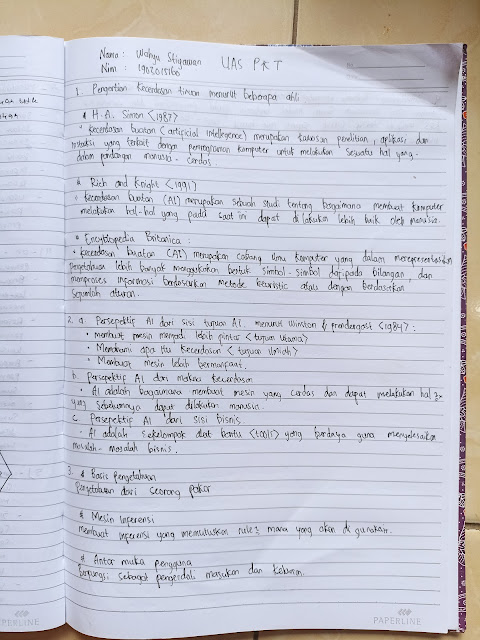 Nama : Wahyu Stiyawan UAS PKT
Nim : 1902015160
1. Pengertian Kecerdasan tiruan menurut beberapa ahli
H.A. Simon <1987>
Kecerdasan buatan (artificial intellegence) merupakan kawasan penelitian, aplikasi dan
instruksi yang terkait dengan pemrograman komputer untuk melakukan sesuatu hal yang -
dalam pandangan manusia - cerdas
Rich and Knight <1991>
Kecerdasan buatan (AI) merupakan sebuah studi tentang bagaimana membuat komputer
melakukan hal-hal yang pada saat ini dapat dilakukan lebih baik oleh manusia.
Encyklopedia Britanica :
Kecerdasan buatan (AI) merupakan cabang ilmu komputer yang dalam merepresentasikan
pengetahuan lebih banyak menggunakan bentuk simbol-simbol daripada bilangan, dan
memproses informasi berdasarkan metode heuristic atau dengan berdasarkan
sejumlah aturan.
2. a. Persepektif AI dari sisi tujuan AI. menurut Winston & prendergast <1984> :
• Membuat mesin menjadi lebih pintar <tujuan utama>
• Memahami apa itu kecerdasan <tujuan ilmiah>
• Membuat mesin lebih bermanfaat.
b. Persepektif AI dari makna kecerdasan
• AI adalah bagaimana membuat mesin yang cerdas dan dapat melakukan hal2
yang sebelumnya dapat dilakukan manusia.
c. Persepektif AI dari sisi bisnis.
• AI adalah sekelompok alat bantu <tools> yang berdaya guna menyelesaikan
masalah-masalah bisnis.
3. Basis pengetahuan
Pengetahuan dari seorang pakar
Mesin inferensi
membuat inferensi yang memutuskan rule2 mana yang akan di gunakan.
Antar muka pengguna
berfungsi sebagai pengendali masukan dan keluaran.
PAPERLINE
PAPERLINE